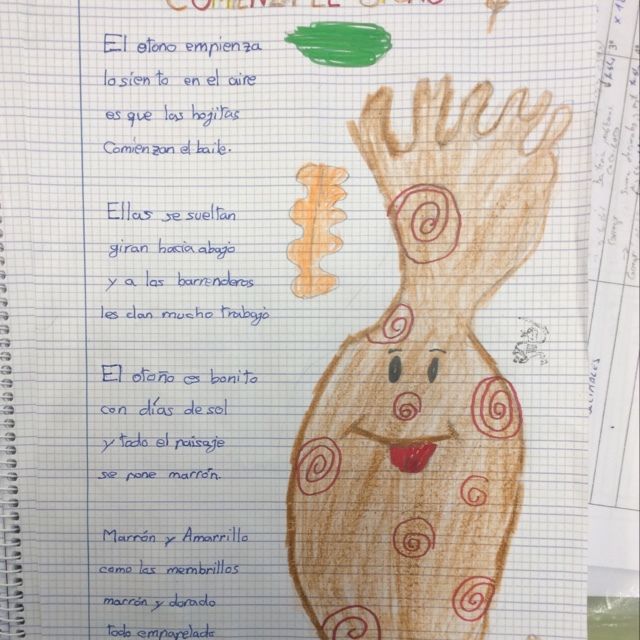 COMIENZA EL OTOÑO
El otoño empienza
lo siento en el aire
es que las hojitas
Comienzan el baile.
Ellas se sueltan
giran hacia abajo
y a los barrenderos
les dan mucho trabajo
El otoño es bonito
con días de sol
y todo el paisaje
se pone marrón.
Marrón y Amarrillo
como los membrillos
marrón y dorado
todo empapelado